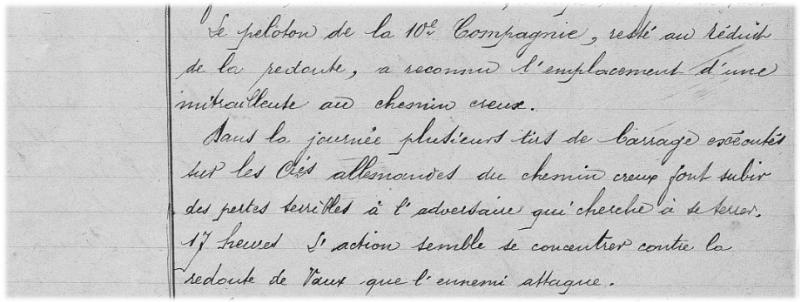 Le peloton de la 10e Compagnie, resté au réduit
de la redoute, a reconnu l'emplacement d'une
mitrailleute au chemin creux.
Dans la journée plusieurs tirs de barrage exécutés
sur les Cies allemandes du chemin creux font subir
des pertes terribles à l'adversaire qui cherche à se terrer.
17 heures L'action semble se concentrer contre la
redoute de Vaux que l'ennemi attaque.